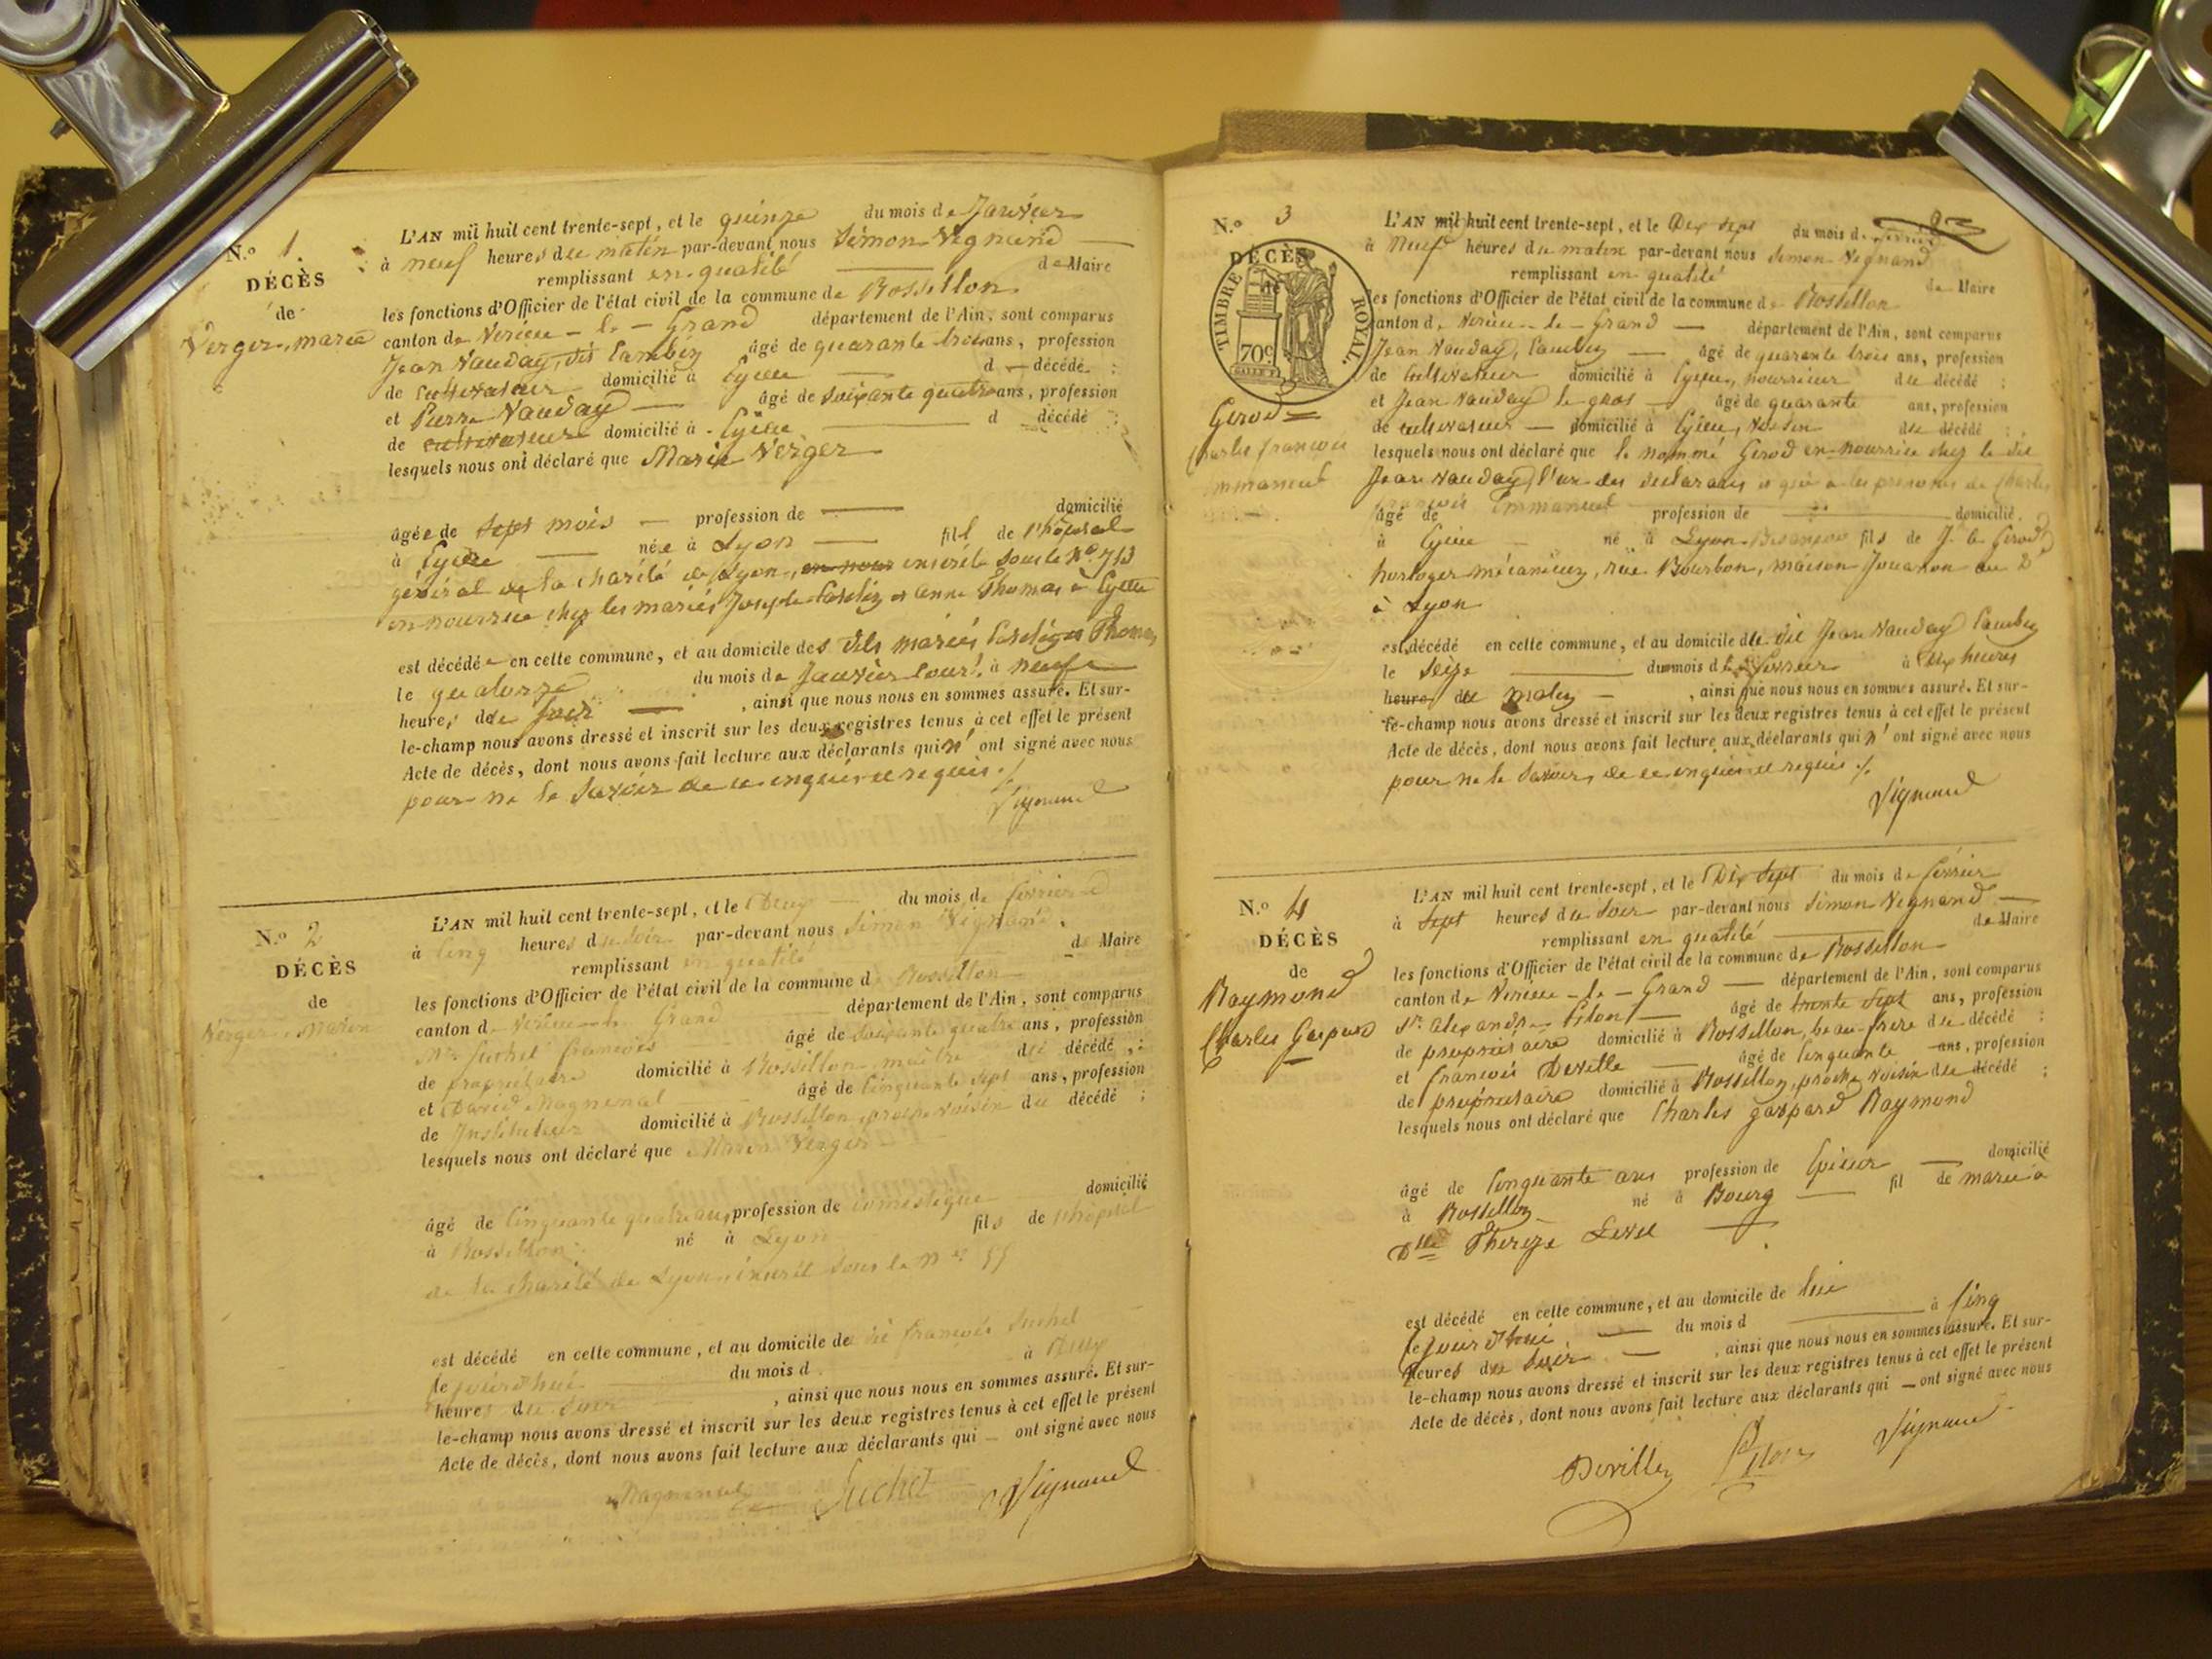 N.o 1.
DÉCÈS
de
Verger, marie
L'AN mil huit cent trente-sept, et le quinze du mois de Janvier
à neuf heures du matin par-devant nous Simon Vignand
remplissant en qualité de Maire
les fonctions d'Officier de l'état civil de la commune de Rossillon
canton de Virieu-le-Grand département de l'Ain, sont comparus
Jean Nauday, dit Cambin âgé de quarante trois ans, profession
de cultivateur domicilié à Eyieu d décédé :
et Pierre Nauday âgé de soixante quatre ans, profession
de cultivateur domicilié à Eyieu d décédé :
lesquels nous ont déclaré que Marie Verger
âgée de sept mois profession de domicilié
à Eyieu née à Lyon fil de l'hôpital
général de la charité de Lyon, inscrite sous le No 713
en nourrice chez les mariés Joseph et anne Thomas à Eyieu
est décédée en cette commune, et au domicile des dits mariés Thomas
le quatorze du mois de Janvier cour.t à neuf
heures du soir, ainsi que nous nous en sommes assuré. Et sur-
le-champ nous avons dressé et inscrit sur les deux registres tenus à cet effet le présent
Acte de décès, dont nous avons fait lecture aux déclarants qui n'ont signé avec nous
pour ne le savoir de ce enquis et requis ./.
Vignand
N.o 2
DÉCÈS
de
Verger, Marin
L'AN mil huit cent trente-sept, et le Deux du mois de février
à cinq heures du soir par-devant nous Simon Vignand
remplissant en qualité de Maire
les fonctions d'Officier de l'état civil de la commune d Rossillon
canton de Virieu-le-Grand département de l'Ain, sont comparus
Mr Suchet françois âgé de soixante quatre ans, profession
de propriétaire domicilié à Rossillon maître du décédé :
et David Magnenal âgé de cinquante sept ans, profession
de Instituteur domicilié à Rossillon, proche voisin du décédé :
lesquels nous ont déclaré que Marin Verger
âgé de cinquante quatre ans, profession de domestique domicilié
à Rossillon né à Lyon fils de l'hôpital
de la charité de Lyon inscrit sous le no 55
est décédé en cette commune, et au domicile de dit françois Suchet
le jourd'hui du mois d à deux
heures du soir, ainsi que nous nous en sommes assuré. Et sur-
le-champ nous avons dressé et inscrit sur les deux registres tenus à cet effet le présent
Acte de décès, dont nous avons fait lecture aux déclarants qui ont signé avec nous
Magnenal Suchet Vignand
N.o 3
DÉCÈS
de
TIMBRE ROYAL.
70c
Girod
Charles françois
Emmanuel
L'AN mil huit cent trente-sept, et le Dix sept du mois de février
à Neuf heures du matin par-devant nous Simon Vignand
remplissant en qualité de Maire
les fonctions d'Officier de l'état civil de la commune de Rossillon
canton de Virieu-le-Grand département de l'Ain, sont comparus
Jean Nauday, Cambin âgé de quarante trois ans, profession
de cultivateur domicilié à Eyieu, nourricier du décédé :
et Jean Nauday le gros âgé de quarante ans, profession
de cultivateur domicilié à Eyieu, voisin du décédé :
lesquels nous ont déclaré que le nommé Girod en nourrice chez le dit
Jean Nauday, l'un des déclarans et qui a les prénoms de Charles
françois Emmanuel
âgé de profession de domicilié
à Eyieu né à Lyon Besançon fils de J. A. Girod
horloger mécanicien, rue Bourbon, maison Jouanon au 2e
à Lyon
est décédé en cette commune, et au domicile du dit Jean Nauday Cambin
le seize du mois de février à dix heures
heures du matin, ainsi que nous nous en sommes assuré. Et sur-
le-champ nous avons dressé et inscrit sur les deux registres tenus à cet effet le présent
Acte de décès, dont nous avons fait lecture aux déclarants qui n'ont signé avec nous
pour ne le savoir, de ce enquis et requis ./.
Vignand
N.o 4
DÉCÈS
de
Raymond
Charles Gaspard
L'AN mil huit cent trente-sept, et le Dix sept du mois de février
à sept heures du soir par-devant nous Simon Vignand
remplissant en qualité de Maire
les fonctions d'Officier de l'état civil de la commune de Rossillon
canton de Virieu-le-Grand département de l'Ain, sont comparus
Sr. alexandre Pilon âgé de trente sept ans, profession
de propriétaire domicilié à Rossillon, beau-frère du décédé :
et françois Deville âgé de cinquante ans, profession
de propriétaire domicilié à Rossillon, proche voisin du décédé :
lesquels nous ont déclaré que Charles gaspard Raymond
âgé de cinquante ans profession de Epicier domicilié
à Rossillon né à Bourg fil de marié à
Dlle Thereze
est décédé en cette commune, et au domicile de lui
le jourd'hui du mois d à cinq
heures du soir, ainsi que nous nous en sommes assuré. Et sur-
le-champ nous avons dressé et inscrit sur les deux registres tenus à cet effet le présent
Acte de décès, dont nous avons fait lecture aux déclarants qui ont signé avec nous
Deville Pilon Vignand